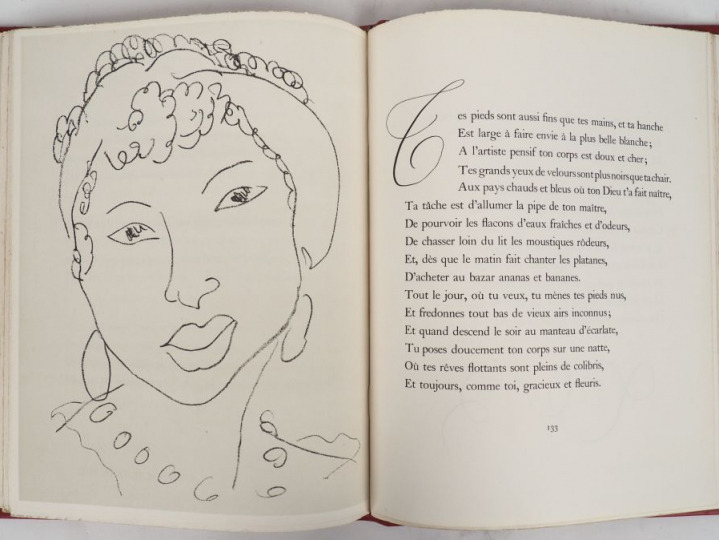 Tes pieds sont aussi fins que tes mains, et ta hanche
Est large à faire envie à la plus belle blanche;
A l'artiste pensif ton corps est doux et cher;
Tes grands yeux de velours sont plus noirs que ta chair.
Aux pays chauds et bleus où ton Dieu t'a fait naître,
Ta tâche est d'allumer la pipe de ton maître,
De pourvoir les flacons d'eaux fraîches et d'odeurs,
De chasser loin du lit les moustiques rôdeurs,
Et, dès que le matin fait chanter les platanes,
D'acheter au bazar ananas et bananes.
Tout le jour, où tu veux, tu mènes tes pieds nus,
Et fredonnes tout bas de vieux airs inconnus;
Et quand descend le soir au manteau d'écarlate,
Tu poses doucement ton corps sur une natte,
Où tes rêves flottants sont pleins de colibris,
Et toujours, comme toi, gracieux et fleuris.
133